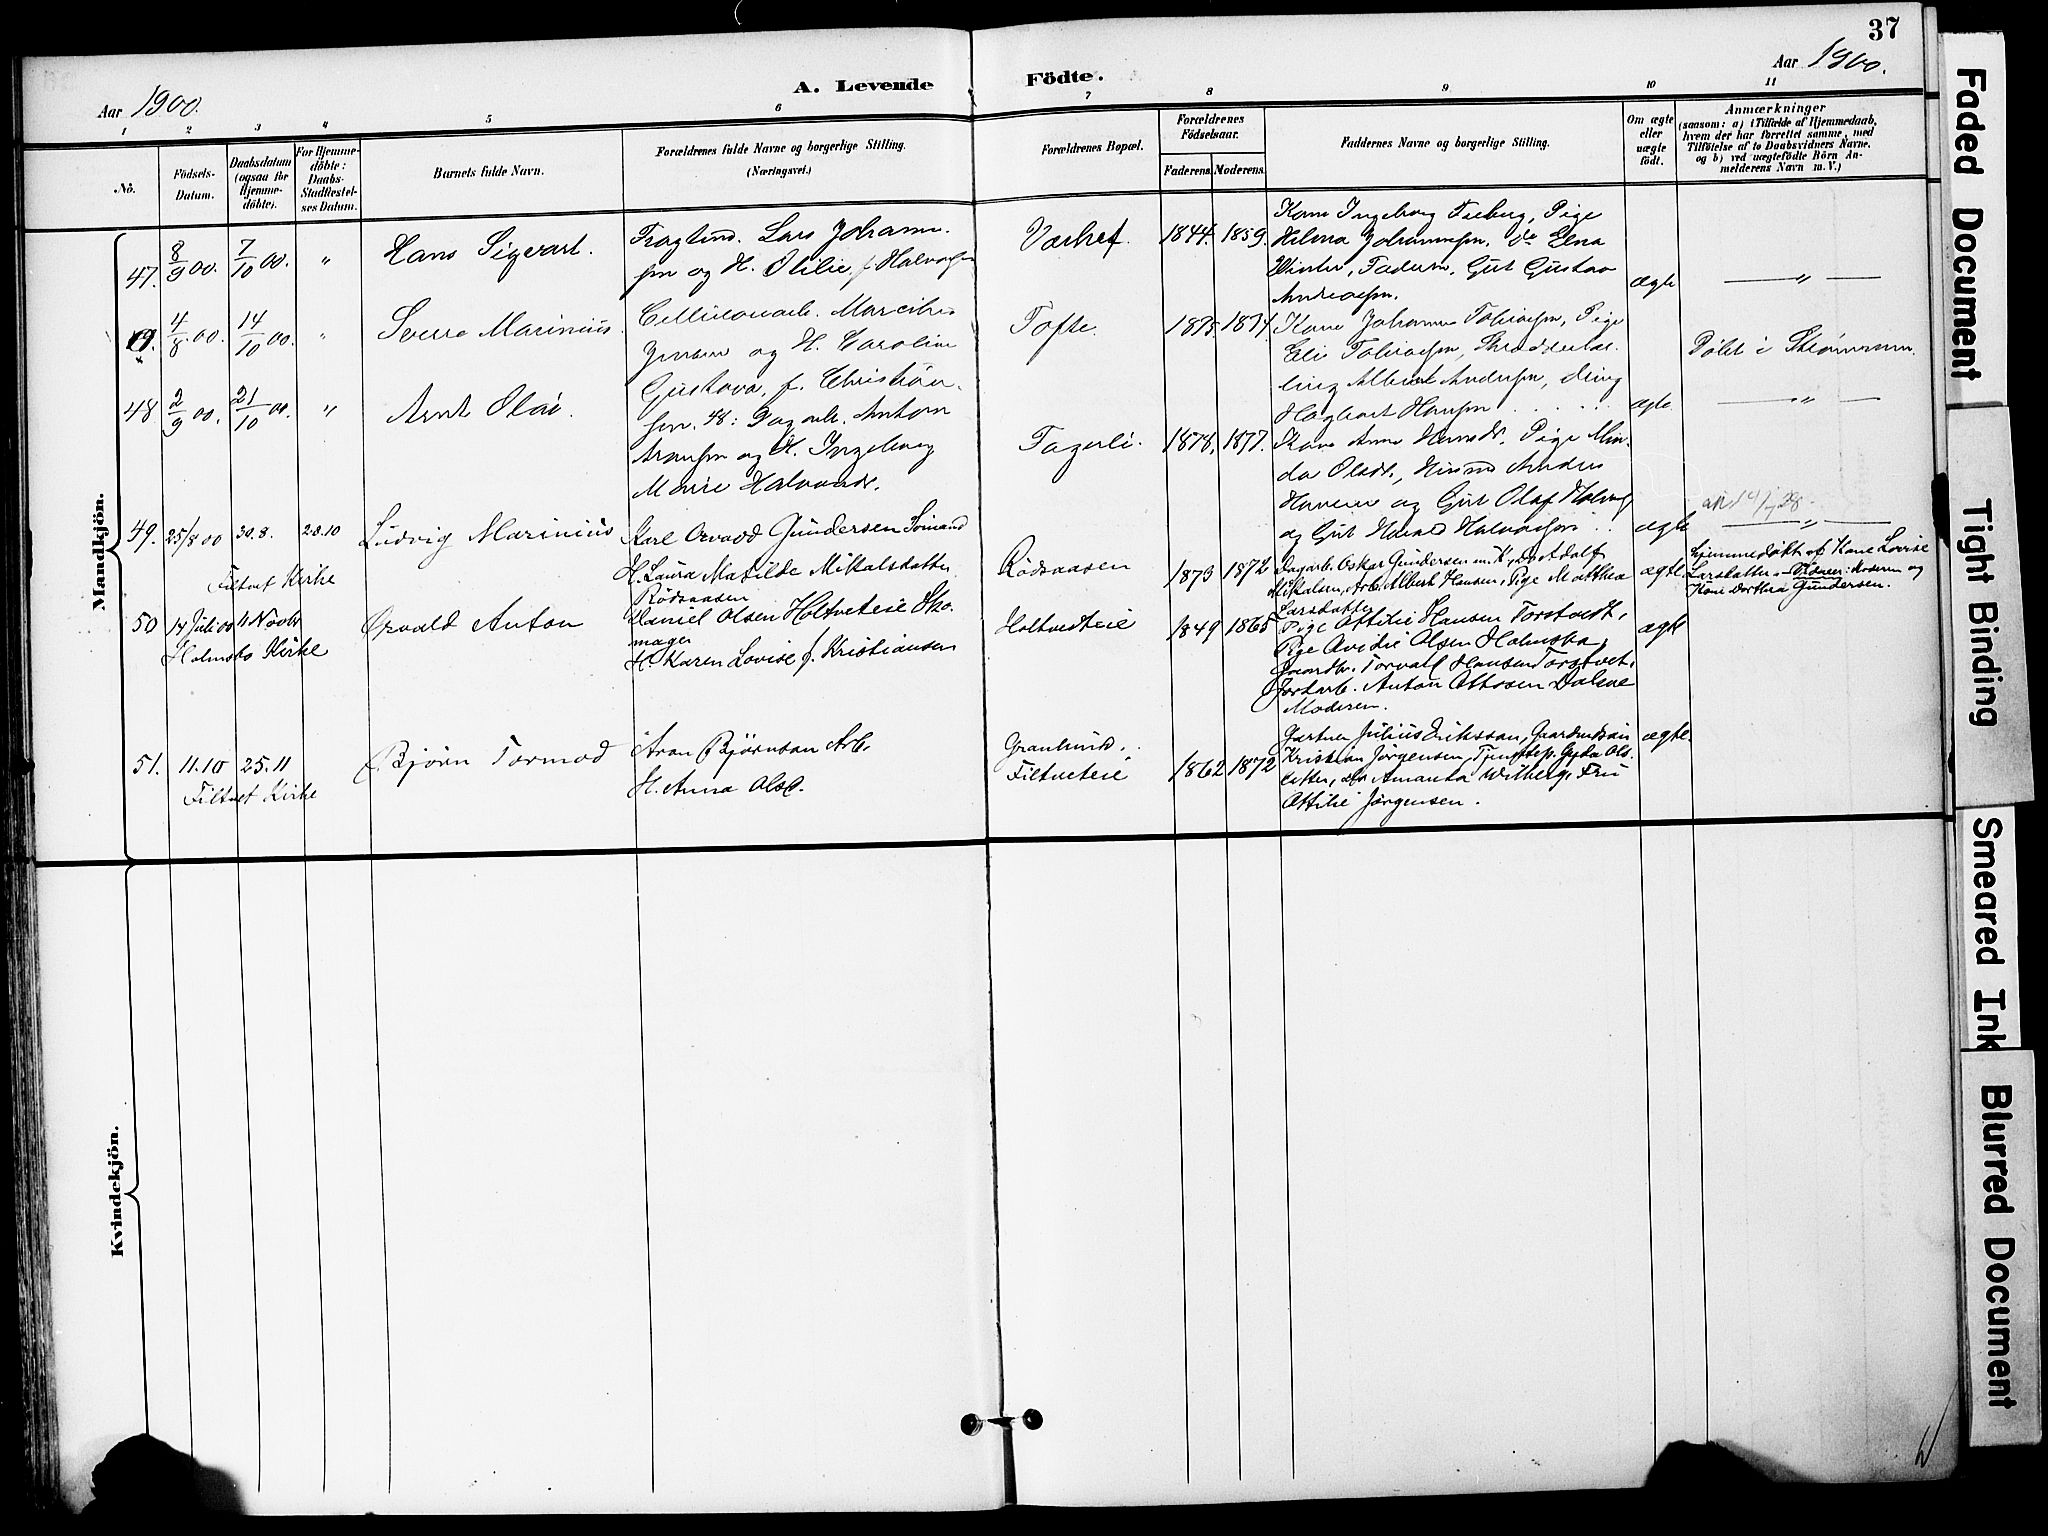 37
Aar 1900.
A. Levende Fødte.
Aar 1900.
1 2 3 4 5 6 7 8 9 10 11
No.
Fødsels-Datum.
Daabsdatum (ogsaa for Hjemme-døbte).
For Hjemme-døbte: Daabs-Stadfæstel-ses Datum.
Barnets fulde Navn.
Forældrenes fulde Navne og borgerlige Stilling.
(Næringsvei.)
Forældrenes Bopæl.
Forældrenes Fødselsaar.
Faderens Moderens
Faddernes Navne og borgerlige Stilling.
Om ægte eller uægte født.
Anmærkninger
(saasom: a) i Tilfælde af Hjemmedaab,
hvem der har forrettet samme, med
Tilføielse af to Daabsvidners Navne,
og b) ved uægtefødte Börn An-
melderens Navn m. V.)
Mandkjön.
47. 8/9 00. 7/10 00. " Hans Sigvart.
Lars Johann-
sen og H. Otilie f. Halvorsen
1844. 1859.
Kone Ingeborg Pige
Helma Johannesen, do Elna
Winter, Faderen, Gut Gustav
Andreasen.
ægte
"
19. 4/8 00. 14/10 00. " Sverre Marinius.
Jensen og H. Caroline
Gustava, f. Christian-
sen.
Tofte. 1875. 1874.
Kone Johanne Tobiasen, Pige
Elis Tobiasen,
Albert Andersen,
Hagbart Hansen
Døbt i
48. 2/9 00. 21/10 00. " Arnt Olai.
48: Dagarb. Anton
og H. Ingeborg
Marie Halvorsd.
Fagerli. 1878. 1877.
Kone Anne Hansdr. Pige Min-
da Olsdr.,
og Gut Olaf
og Gut Halvorsen
ægte
"
49. 25/8 00 30.8. 28.10 Ludvig Marinius
Filtvet Kirke
Karl Orvald Gundersen Sömand
H. Laura Matilde Mikalsdatter
Rödsaasen
Rödsaasen 1873 1872
Dagarb. Oskar Gundersen m. K., Adolf
Mikalsen, Arb. Albert Hansen, Pige Matthea
Larsdatter
ægte
hjemmedøbt af Kone Lovise
Larsdatter Moderen og
Kone Dorthea Gundersen.
50 14 Juli 00 11 Novbr Orvald Anton
Holmsbo Kirke
Daniel Olsen Holtveteie Sko-
mager
H. Karen Lovise f. Kristiansen
Holtvedteie 1849 1865
Pige Attilie Hansen Torstvedt,
Pige Olsen Holmsbo,
Torvald Hansen Torstvet,
Anton Ottosen Dalene
Moderen.
ægte
51. 11.10 25.11 Bjørn Tormod
Filtvet Kirke
Aron Björnson Arb.
H. Anna Olsd.
Granlund.
Filtveteie 1862 1872
Gartner Julius Erikssen,
Kristian Jörgensen, Gyda Ols-
datter, do Amanda Wilberg, Fru
Attilie Jörgensen.
ægte.
Kvindekjön.
Faded Document
Tight Binding
Smeared Ink
Blurred Document